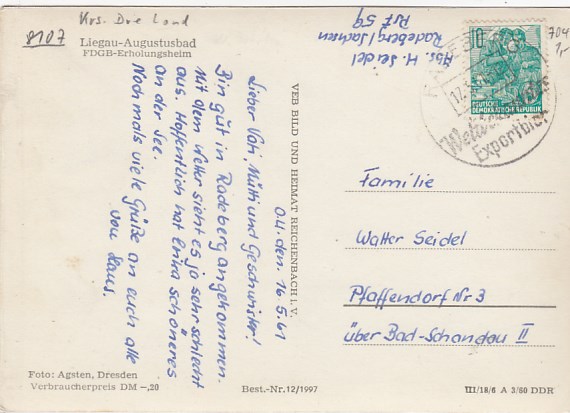 Krs. Dre Land
8107
Liegau-Augustusbad
FDGB-Erholungsheim
Abs. H. Seidel
Radeberg/Sachsen
Psf 59
10
DEUTSCHE
DEMOKRATISCHE REPUBLIK
Exportbier
704
1,-
O.U. den. 16.5.61
Lieber Vati, Mutti und Geschwister!
Bin gut in Radeberg angekommen.
Mit dem Wetter sieht es ja sehr schlecht
aus. Hoffentlich hat Erika schöneres
an der See.
Nochmals viele Grüße an euch alle
von Haus.
VEB BILD UND HEIMAT REICHENBACH I. V.
Familie
Walter Seidel
Pfaffendorf Nr 3
über Bad-Schandau II
Foto: Agsten, Dresden
Verbraucherpreis DM –,20
Best.-Nr. 12/1997
III/18/6 A 3/60 DDR